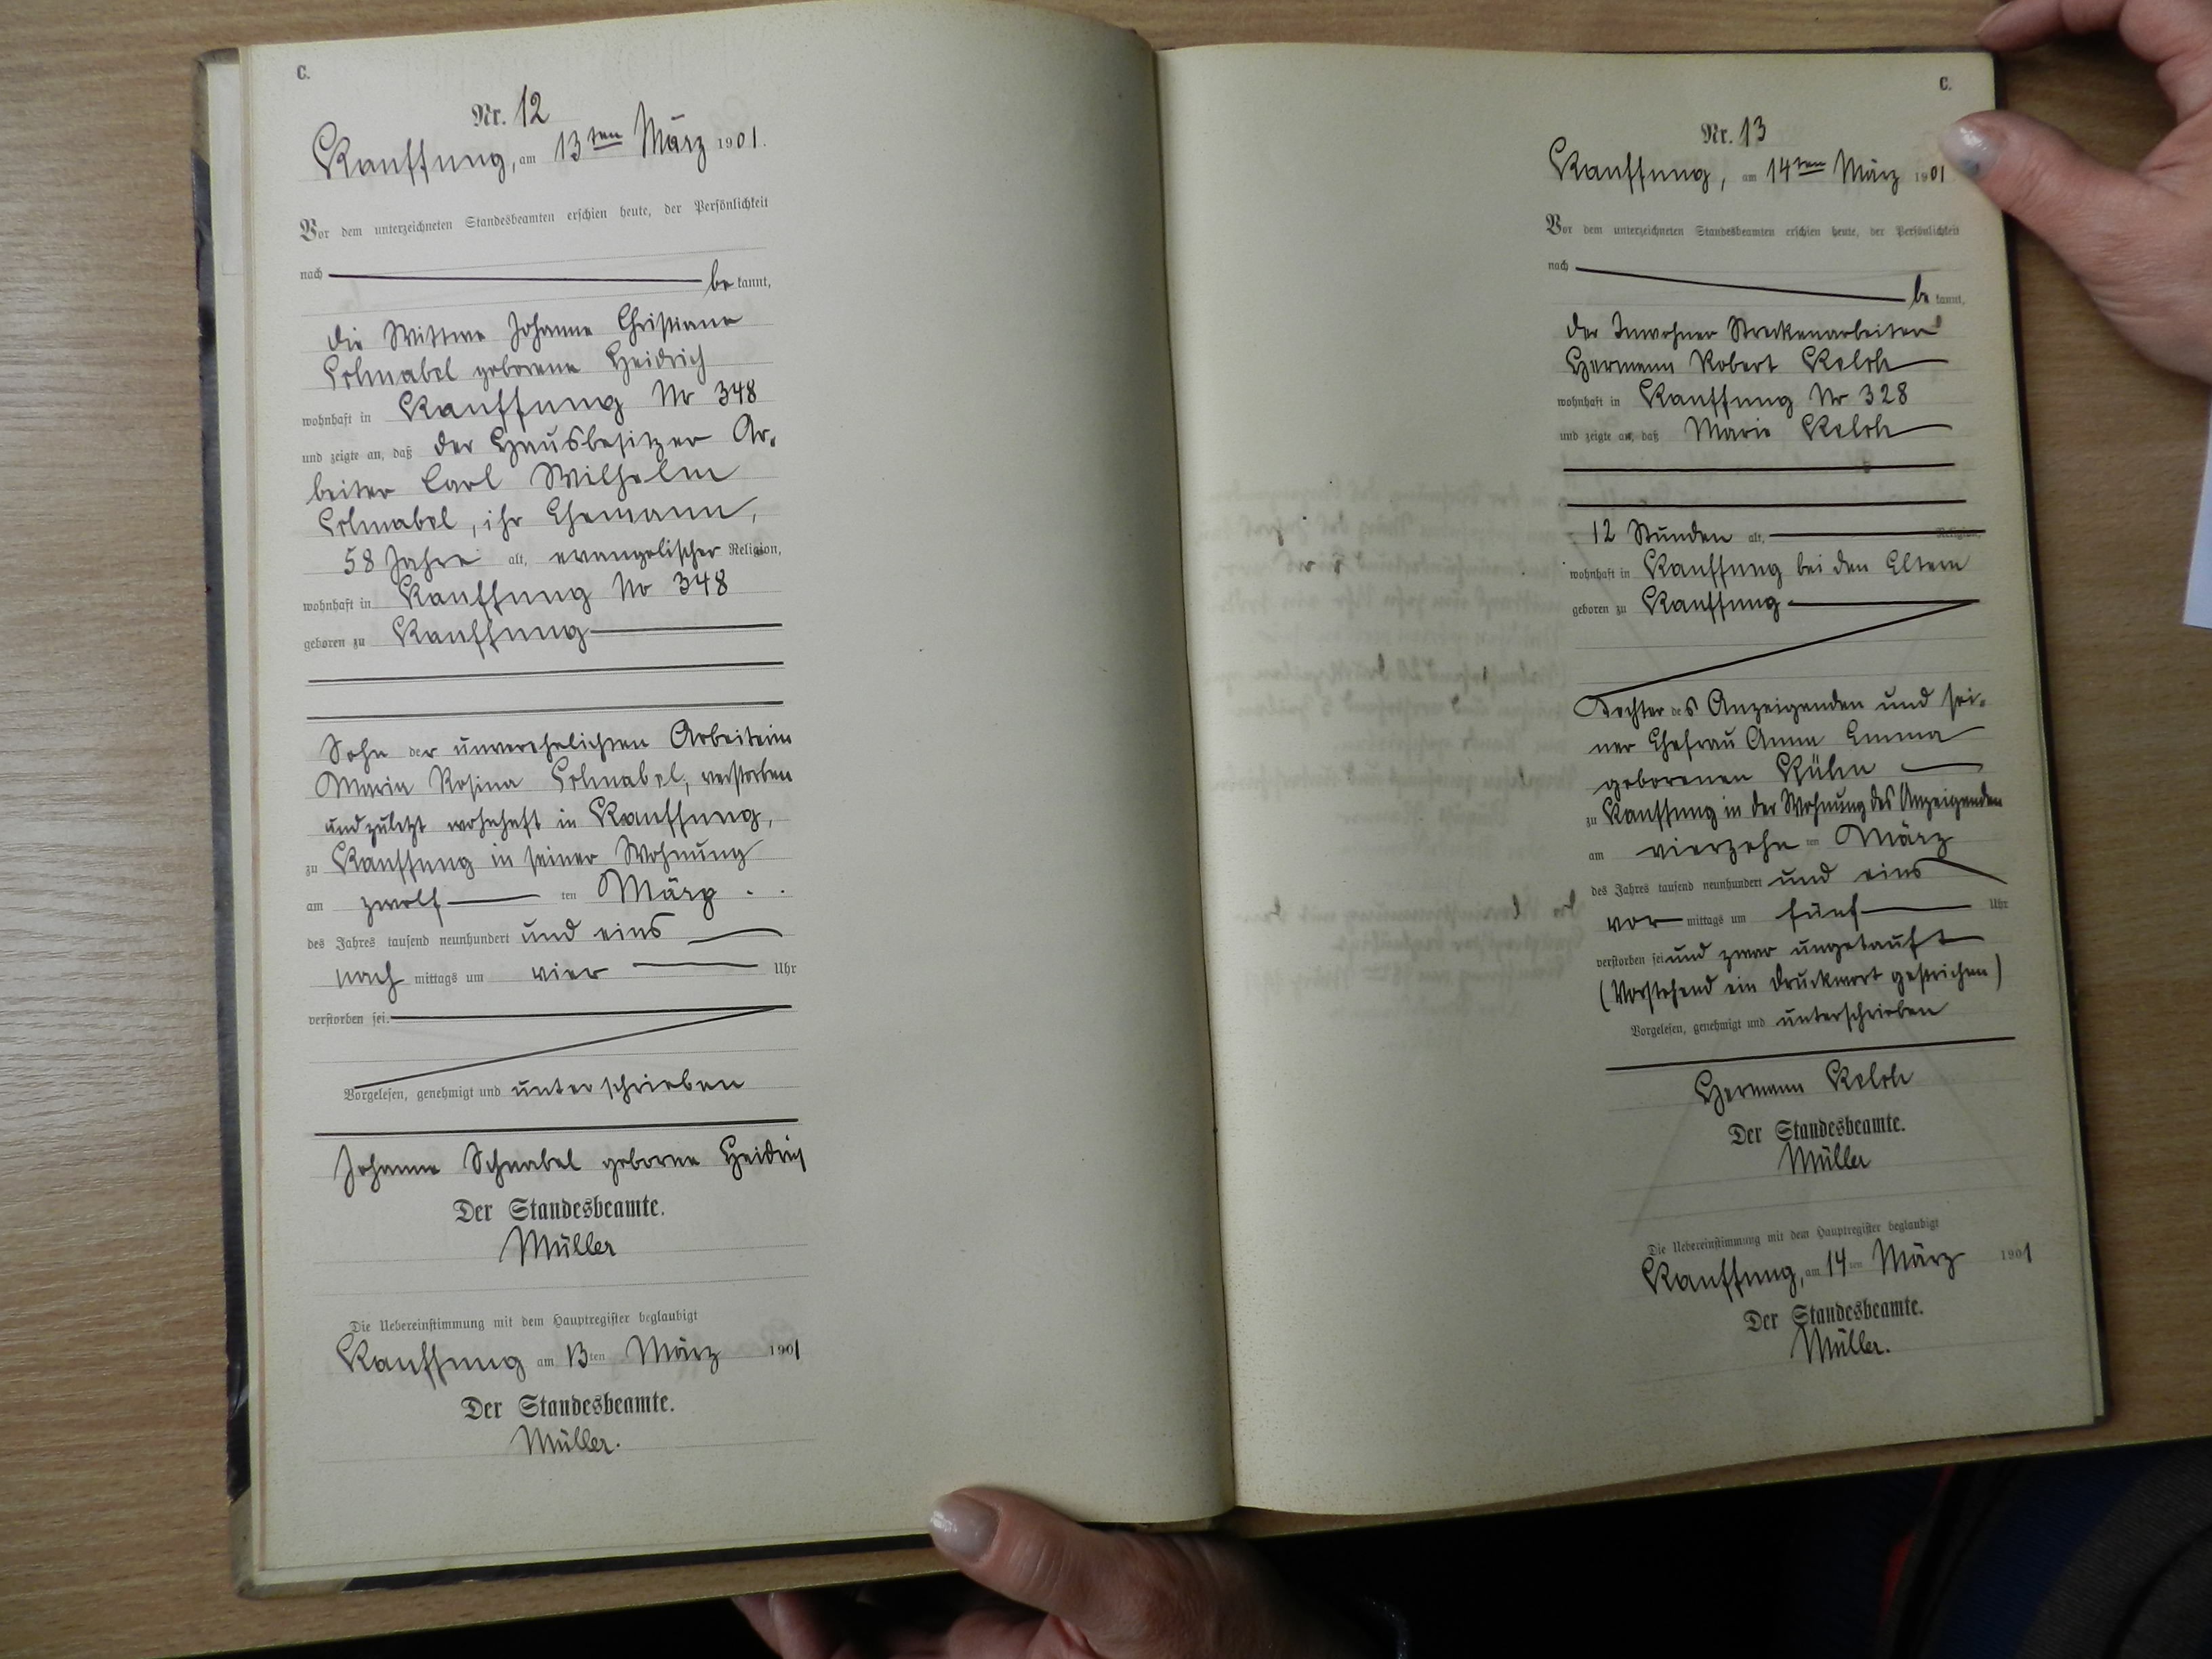 C.
Nr. 12
Kauffung, am 13ten März 1901.
Vor dem unterzeichneten Standesbeamten erschien heute, der Persönlichkeit
nach bekannt,
die Wittwe Johanne Christiane
Schnabel geborene Heidrich
wohnhaft in Kauffung Nr 348
und zeigte an, daß der Hausbesitzer Ar-
beiter Carl Wilhelm
Schnabel, ihr Ehemann,
58 Jahre alt, evangelischer Religion,
wohnhaft in Kauffung No 348
geboren zu Kauffung
Sohn der unverehelichten Arbeiterin
Maria Rosina Schnabel, verstorben
und zuletzt wohnhaft in Kauffung,
zu Kauffung in seiner Wohnung
am zwölf ten März
des Jahres tausend neunhundert und eins
nach mittags um vier Uhr
verstorben sei.
Vorgelesen, genehmigt und unterschrieben
Johanne Schnabel geborne Heidrich
Der Standesbeamte.
Müller
Die Uebereinstimmung mit dem Hauptregister beglaubigt
Kauffung am 13ten März 1901
Der Standesbeamte.
Müller.
C.
Nr. 13
Kauffung, am 14ten März 1901
Vor dem unterzeichneten Standesbeamten erschien heute, der Persönlichkeit
nach bekannt,
der Inwohner Streckenarbeiter
Hermann Robert Kelch
wohnhaft in Kauffung Nr 328
und zeigte an, daß Marie Kelch
12 Stunden alt, Religion,
wohnhaft in Kauffung bei den Eltern
geboren zu Kauffung
Tochter des Anzeigenden und sei-
ner Ehefrau Anna Emma
geborenen Kühn
zu Kauffung in der Wohnung des Anzeigenden
am vierzehn ten März
des Jahres tausend neunhundert und eins
vor mittags um fünf Uhr
verstorben sei und zwar ungetauft
(Vorstehend ein Druckwort gestrichen)
Vorgelesen, genehmigt und unterschrieben
Hermann Kelch
Der Standesbeamte.
Müller
Die Uebereinstimmung mit dem Hauptregister beglaubigt
Kauffung, am 14ten März 1901
Der Standesbeamte.
Müller.